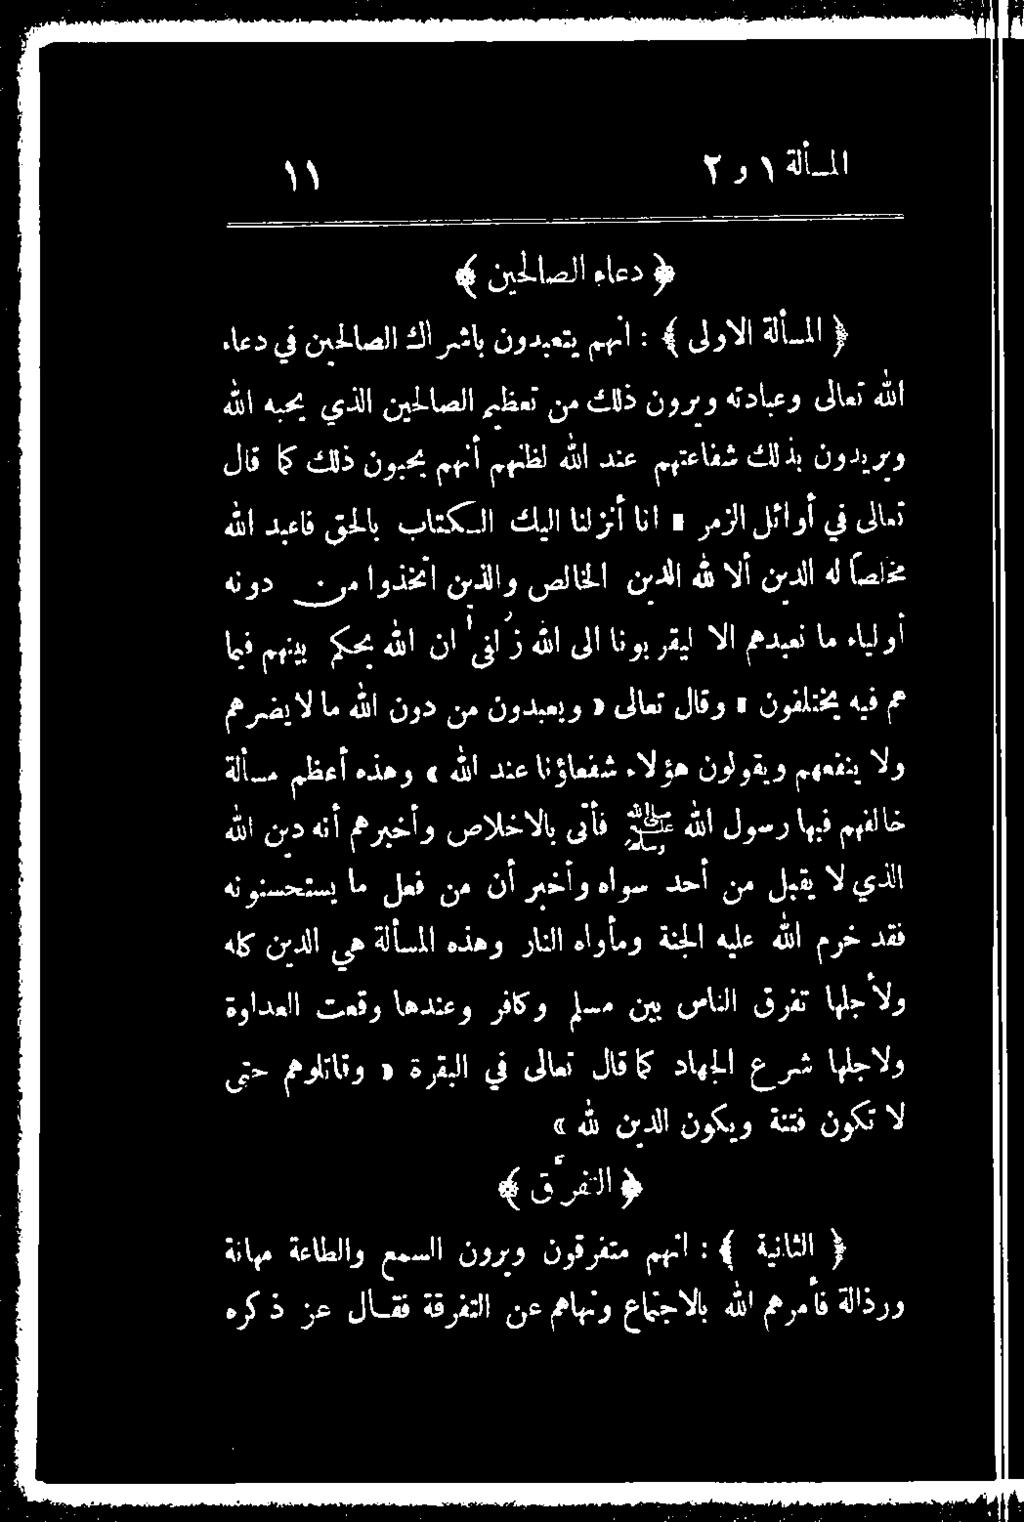 المسألة ١ و ٢
١١
﴿ دعاء الصالحين ﴾
﴿ المسألة الاولى ﴾ : انهم يتعبدون باشراك الصالحين في دعاء
الله تعالى وعبادته ويرون ذلك من تعظيم الصالحين الذي يحبه الله
ويريدون بذلك شفاعتهم عند الله لظنهم أنهم يحبون ذلك كما قال
تعالى في أوائل الزمر « انا أنزلنا اليك الكتاب بالحق فاعبد الله
مخلصاً له الدين ألا لله الدين الخالص والذين اتخذوا من دونه
أولياء ما نعبدهم الا ليقربونا الى الله زُلفى ان الله يحكم بينهم فيما
هم فيه يختلفون » وقال تعالى « ويعبدون من دون الله ما لا يضرهم
ولا ينفعهم ويقولون هؤلاء شفعاؤنا عند الله » وهذه أعظم مسألة
خالفهم فيها رسول الله ﷺ فأتى بالاخلاص وأخبرهم أنه دين الله
الذي لا يقبل من أحد سواه وأخبر أن من فعل ما يستحسنونه
فقد حرم الله عليه الجنة ومأواه النار وهذه المسألة هي الدين كله
ولأجلها تفرق الناس بين مسلم وكافر وعندها وقعت العداوة
ولاجلها شرع الجهاد كما قال تعالى في البقرة « وقاتلوهم حتى
لا تكون فتنة ويكون الدين لله »
﴿ التفرّق ﴾
﴿ الثانية ﴾ : انهم متفرقون ويرون السمع والطاعة مهانة
ورذالة فأمرهم الله بالاجتماع ونهاهم عن التفرقة فقال عز ذكره